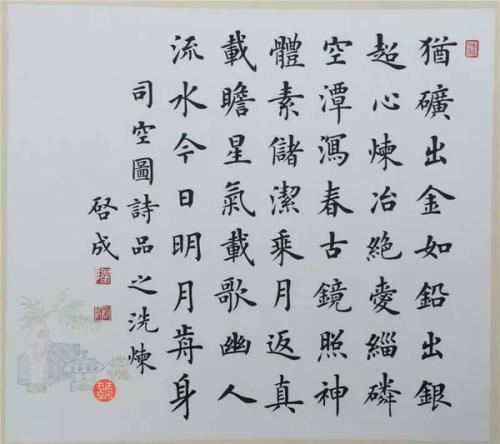 猶礦出金如鉛出銀
超心煉冶絶愛緇磷
空潭瀉春古鏡照神
體素儲潔乘月返真
載瞻星氣載歌幽人
流水今日明月歬身
司空圖詩品之洗煉
啓成